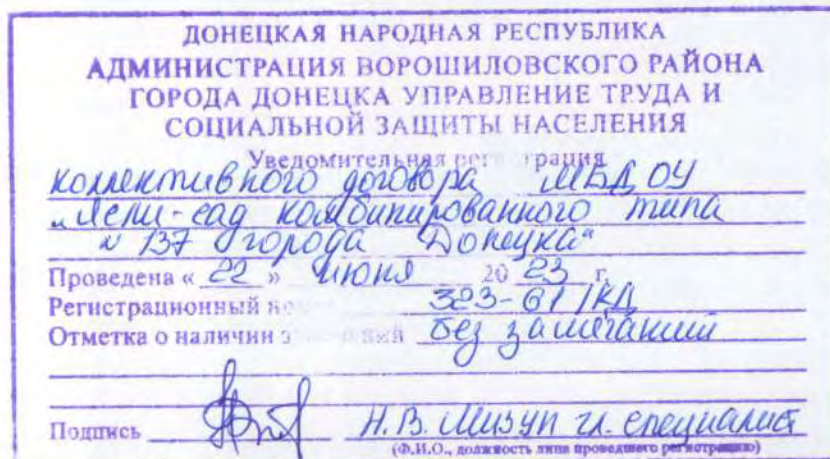 ДОНЕЦКАЯ НАРОДНАЯ РЕСПУБЛИКА
АДМИНИСТРАЦИЯ ВОРОШИЛОВСКОГО РАЙОНА
ГОРОДА ДОНЕЦКА УПРАВЛЕНИЕ ТРУДА И
СОЦИАЛЬНОЙ ЗАЩИТЫ НАСЕЛЕНИЯ
Уведомительная регистрация
коллективного договора МБДОУ
„Ясли-сад комбинированного типа
№ 137 города Донецка"
Проведена « 22 » июня 20 23 г.
Регистрационный 323-61/КД
Отметка о наличии без замечаний
Подпись Н.В. Мизун гл. специалист
(Ф.И.О., должность лица проведшего регистрацию)